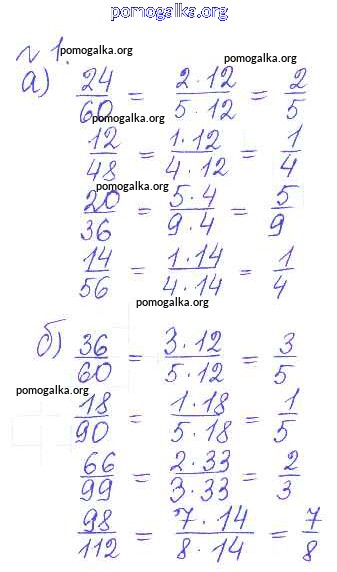 pomogalka.org
№1. pomogalka.org
а) 24/60 = 2·12/5·12 = 2/5
pomogalka.org
12/48 = 1·12/4·12 = 1/4
pomogalka.org
20/36 = 5·4/9·4 = 5/9
14/56 = 1·14/4·14 = 1/4
pomogalka.org
б) 36/60 = 3·12/5·12 = 3/5
pomogalka.org
18/90 = 1·18/5·18 = 1/5
66/99 = 2·33/3·33 = 2/3
98/112 = 7·14/8·14 = 7/8